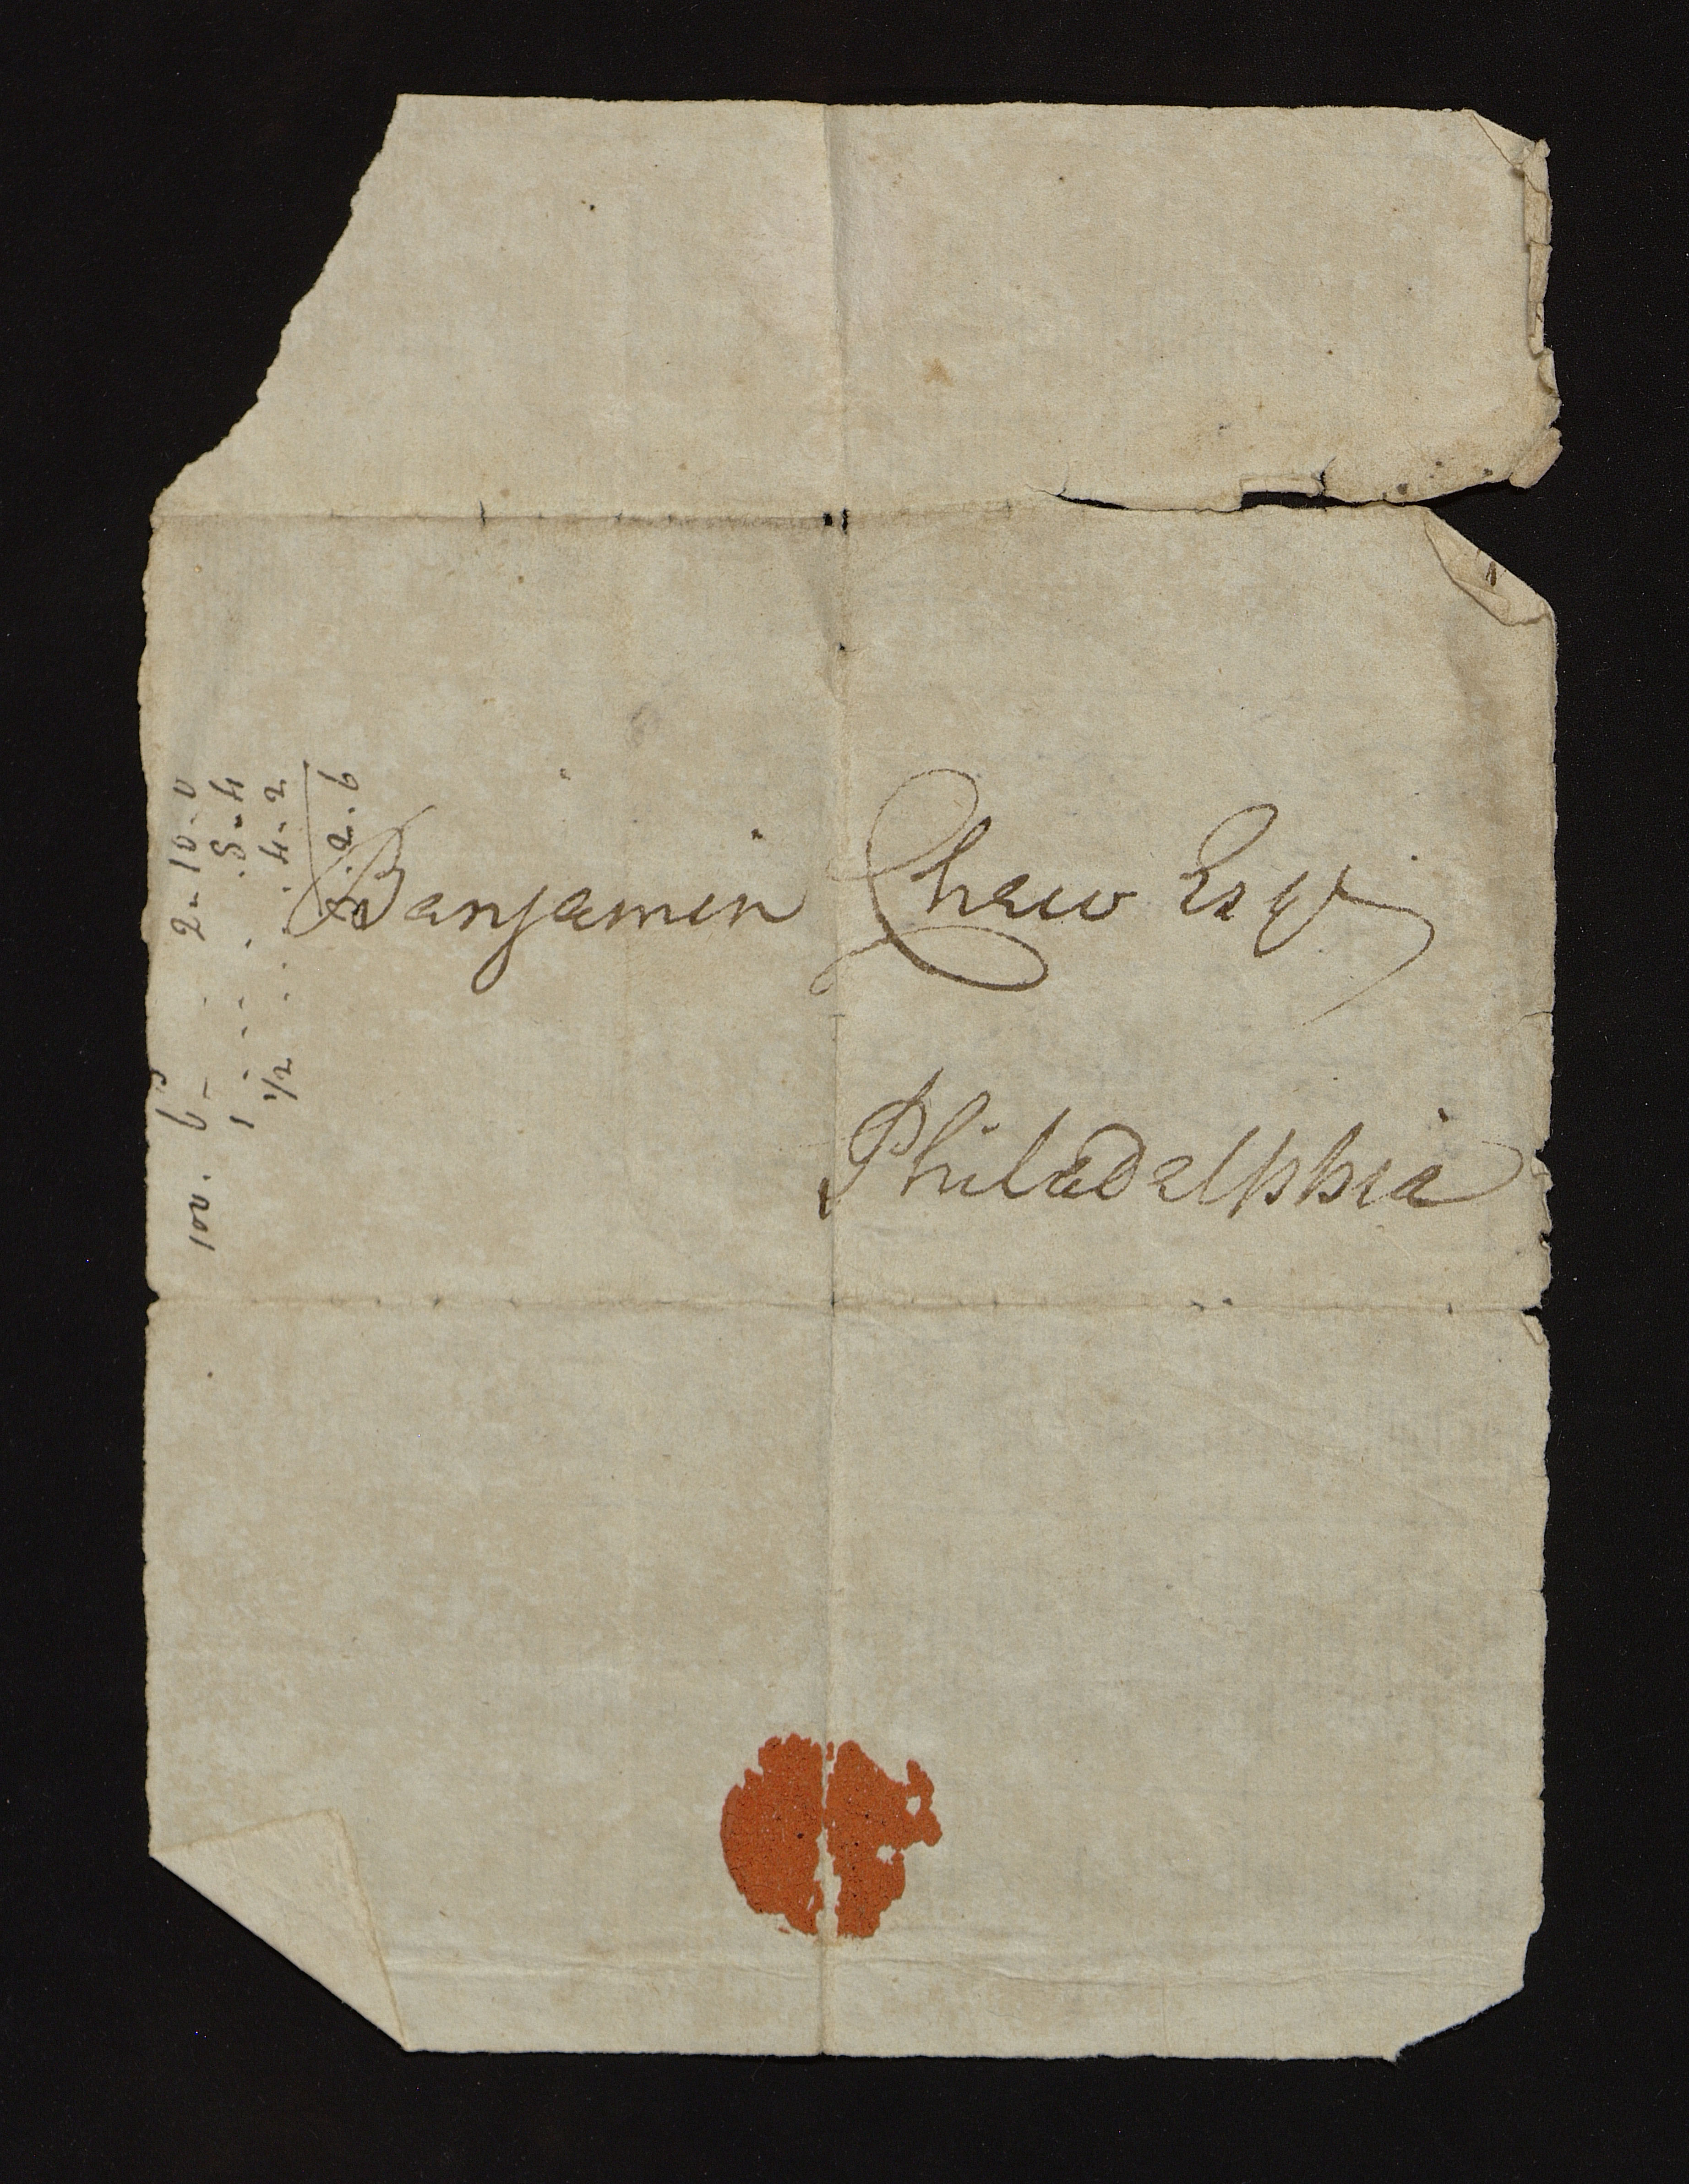 Benjamin Chew Esqr
Philadelphia
100. 6 . 2 - 10 - 0
1 . . . . 8 - 4
1/2 . . . 4 - 2
2. 6